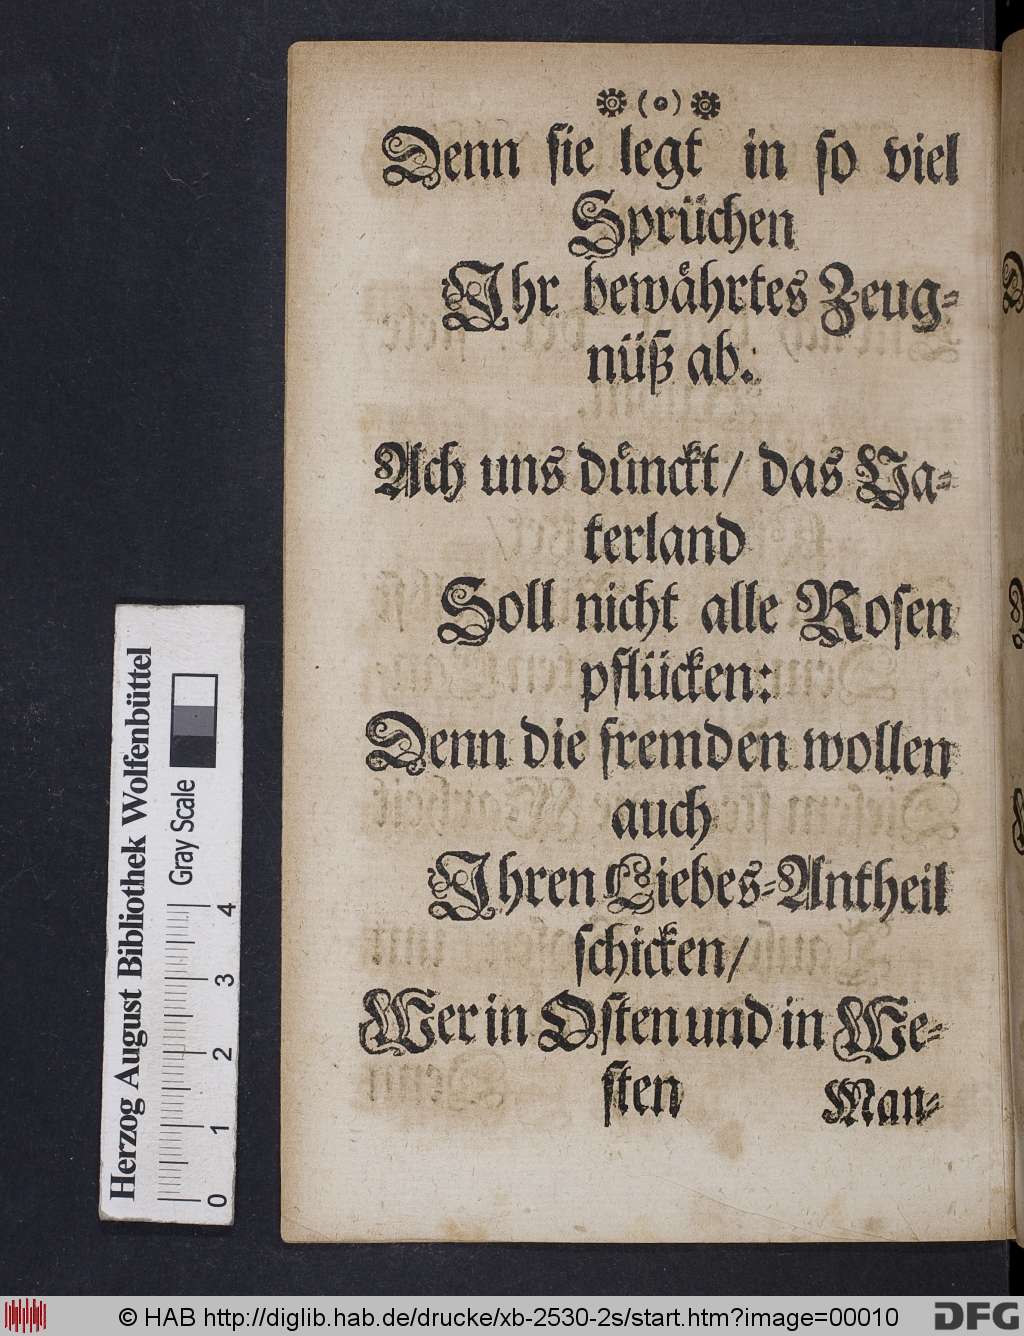 (o)
Denn sie legt in so viel
Sprüchen
Ihr bewåhrtes Zeug-
nüß ab.
Ach uns důnckt/ das Va-
terland
Soll nicht alle Rosen
pflücken:
Denn die fremden wollen
auch
Ihren Liebes-Antheil
schicken/
Wer in Osten und in We-
sten
Man-
Herzog August Bibliothek Wolfenbüttel
Gray Scale
0 1 2 3 4
© HAB http://diglib.hab.de/drucke/xb-2530-2s/start.htm?image=00010
DFG